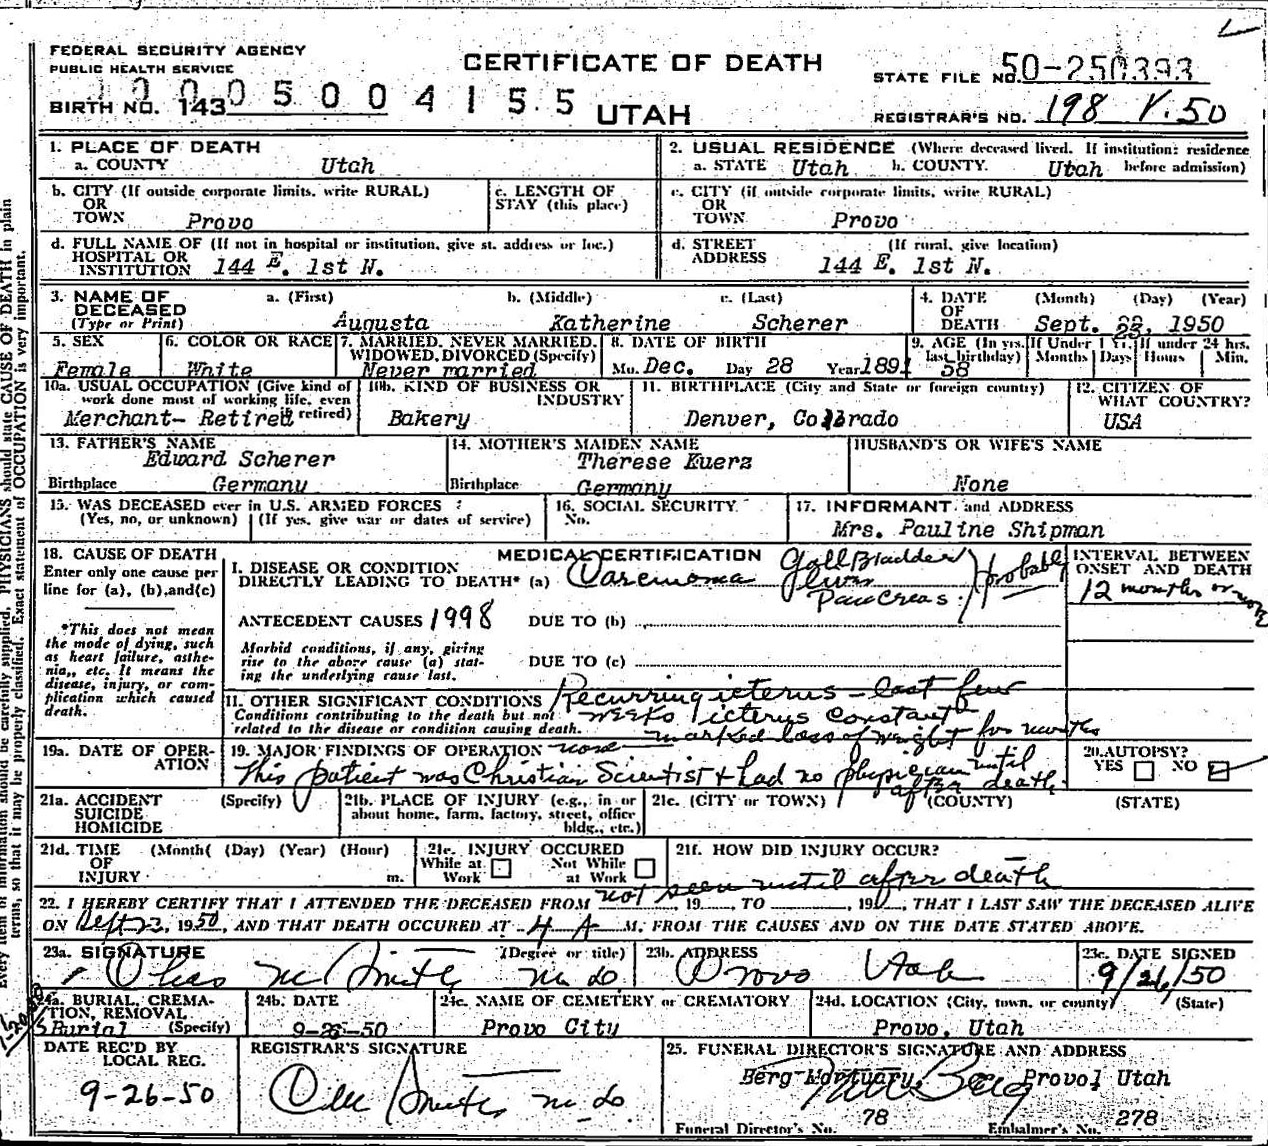 FEDERAL SECURITY AGENCY
PUBLIC HEALTH SERVICE
CERTIFICATE OF DEATH
STATE FILE NO. 50-250393
BIRTH NO. 143
0 0 5 0 0 4 1 5 5
UTAH
REGISTRAR'S NO. 198 V.50
1. PLACE OF DEATH
a. COUNTY Utah
2. USUAL RESIDENCE (Where deceased lived. If institution: residence before admission)
a. STATE Utah b. COUNTY. Utah
b. CITY (If outside corporate limits, write RURAL)
OR
TOWN Provo
c. LENGTH OF
STAY (this place)
c. CITY (if outside corporate limits, write RURAL)
OR
TOWN Provo
d. FULL NAME OF (If not in hospital or institution, give st. address or loc.)
HOSPITAL OR
INSTITUTION 144 E. 1st N.
d. STREET (If rural, give location)
ADDRESS 144 E. 1st N.
3. NAME OF DECEASED
(Type or Print)
a. (First) Augusta
b. (Middle) Katherine
c. (Last) Scherer
4. DATE OF DEATH (Month) (Day) (Year)
Sept. 22, 1950
5. SEX
Female
6. COLOR OR RACE
White
7. MARRIED, NEVER MARRIED,
WIDOWED, DIVORCED (Specify)
Never married
8. DATE OF BIRTH
Mo. Dec. Day 28 Year 1891
9. AGE (In yrs. last birthday)
58
If Under 1 Yr.
Months Days
If under 24 hrs.
Hours Min.
10a. USUAL OCCUPATION (Give kind of
work done most of working life, even
if retired)
Merchant- Retired
10b. KIND OF BUSINESS OR
INDUSTRY
Bakery
11. BIRTHPLACE (City and State or foreign country)
Denver, Colorado
12. CITIZEN OF
WHAT COUNTRY?
USA
13. FATHER'S NAME
Edward Scherer
Birthplace Germany
14. MOTHER'S MAIDEN NAME
Therese Kuerz
Birthplace Germany
HUSBAND'S OR WIFE'S NAME
None
15. WAS DECEASED ever in U.S. ARMED FORCES?
(Yes, no, or unknown) (If yes, give war or dates of service)
16. SOCIAL SECURITY
No.
17. INFORMANT and ADDRESS
Mrs. Pauline Shipman
18. CAUSE OF DEATH
Enter only one cause per
line for (a), (b), and (c)
*This does not mean
the mode of dying, such
as heart failure, asthe-
nia, etc. It means the
disease, injury, or com-
plication which caused
death.
MEDICAL CERTIFICATION
I. DISEASE OR CONDITION
DIRECTLY LEADING TO DEATH* (a) Carcinoma Gall Bladder
Liver
Pancreas. probably
ANTECEDENT CAUSES 1998 DUE TO (b)
Morbid conditions, if any, giving
rise to the above cause (a) stat-
ing the underlying cause last.
DUE TO (c)
INTERVAL BETWEEN
ONSET AND DEATH
12 months or more
11. OTHER SIGNIFICANT CONDITIONS
Conditions contributing to the death but not
related to the disease or condition causing death.
Recurring icterus - last few
weeks icterus constant
marked loss of weight for months
19a. DATE OF OPER-
ATION
19. MAJOR FINDINGS OF OPERATION none
This patient was Christian Scientist & had no physician until
after death.
20. AUTOPSY?
YES NO
21a. ACCIDENT (Specify)
SUICIDE
HOMICIDE
21b. PLACE OF INJURY (e.g., in or
about home, farm, factory, street, office
bldg., etc.)
21c. (CITY or TOWN) (COUNTY) (STATE)
21d. TIME (Month) (Day) (Year) (Hour)
OF
INJURY m.
21e. INJURY OCCURED
While at Work
Not While at Work
21f. HOW DID INJURY OCCUR?
not seen until after death
22. I HEREBY CERTIFY THAT I ATTENDED THE DECEASED FROM , 19 , TO , 19 , THAT I LAST SAW THE DECEASED ALIVE
ON Sept 22, 1950, AND THAT DEATH OCCURED AT 4 A M. FROM THE CAUSES AND ON THE DATE STATED ABOVE.
23a. SIGNATURE (Degree or title)
23b. ADDRESS
Provo Utah
23c. DATE SIGNED
9/26/50
24a. BURIAL, CREMA-
TION, REMOVAL
Burial (Specify)
24b. DATE
9-26-50
24c. NAME OF CEMETERY or CREMATORY
Provo City
24d. LOCATION (City, town, or county) (State)
Provo, Utah
DATE REC'D BY
LOCAL REG.
9-26-50
REGISTRAR'S SIGNATURE
25. FUNERAL DIRECTOR'S SIGNATURE AND ADDRESS
Berg Mortuary, Provo, Utah
Funeral Director's No. 78
Embalmer's No. 278